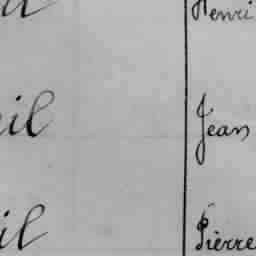 Henri
il Jean
il Pierre